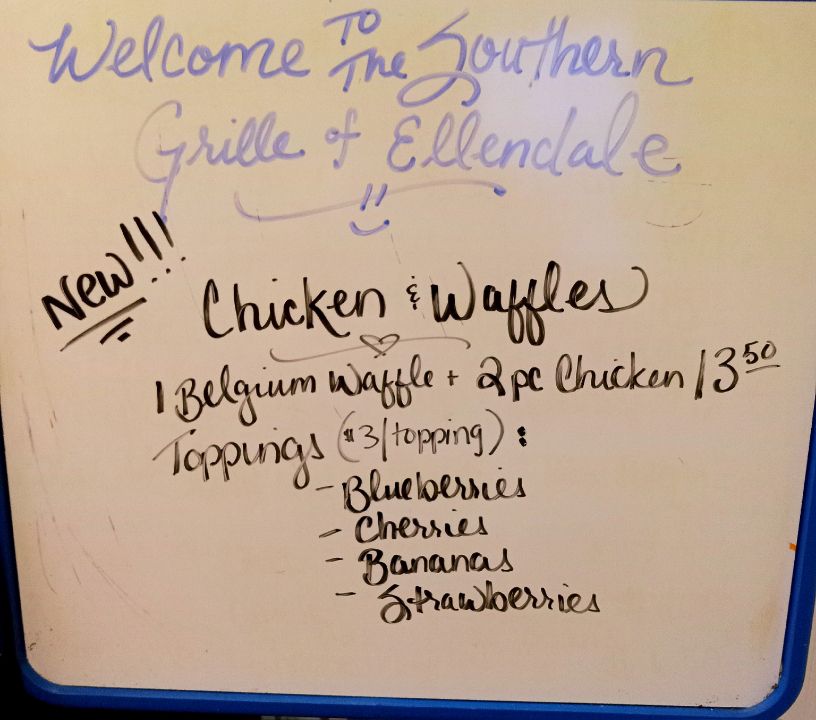 Welcome To The Southern
Grille of Ellendale
New!!!
Chicken & Waffles
1 Belgium Waffle + 2pc Chicken 13 50
Toppings ($3/topping):
- Blueberries
- Cherries
- Bananas
- Strawberries